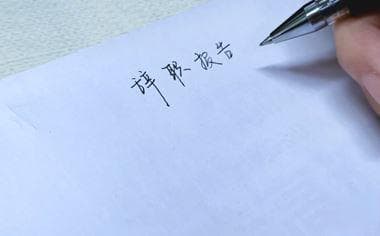 辞职报告